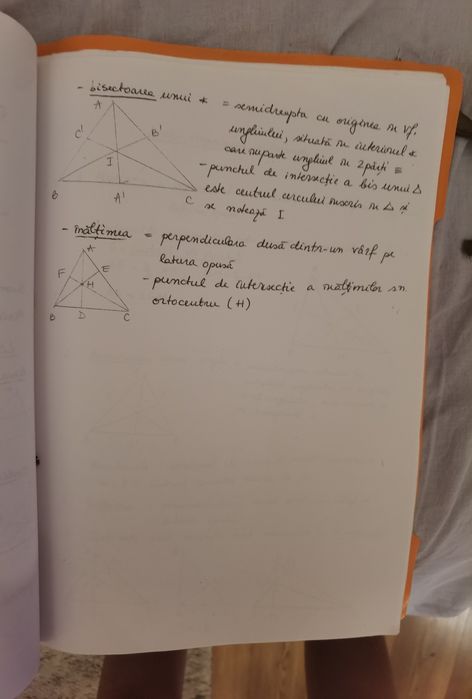 - bisectoarea unui ∢ = semidreapta cu originea în vf.
A
unghiului, situată în interiorul ∢
C' B'
care împarte unghiul în 2 părți ≡
I
- punctul de intersecție a bis unui △
B A' C
este centrul cercului înscris în △ și
se notează I
- înălțimea = perpendiculara dusă dintr-un vârf pe
A
latura opusă
F E
H
- punctul de intersecție a înălțimilor sn
ortocentru (H)
B D C